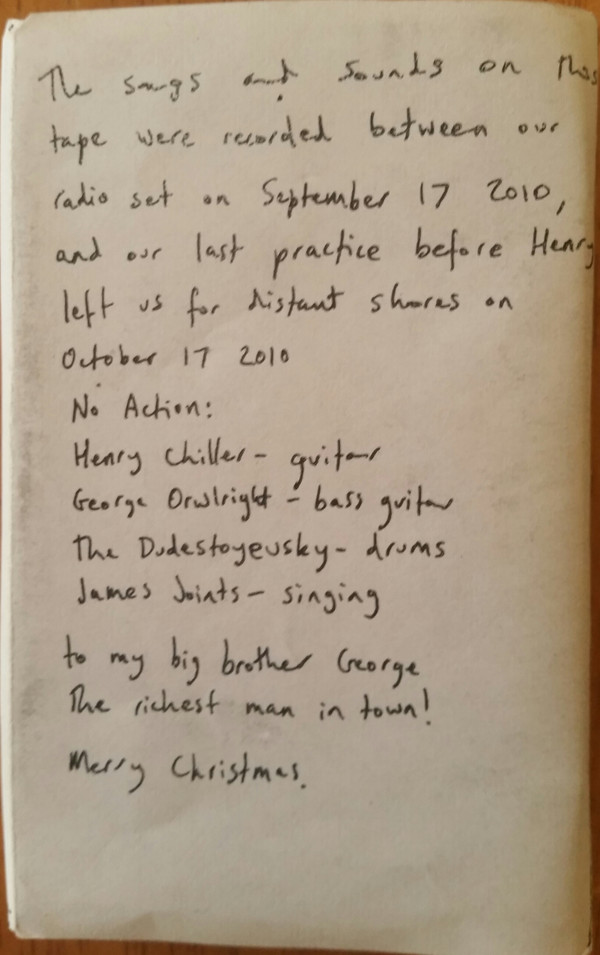 The songs and sounds on this
tape were recorded between our
radio set on September 17 2010,
and our last practice before Henry
left us for distant shores on
October 17 2010
No Action:
Henry Chiller - guitar
George Orwlright - bass guitar
The Dudestoyevsky - drums
James Joints - singing
to my big brother George
The richest man in town!
Merry Christmas.